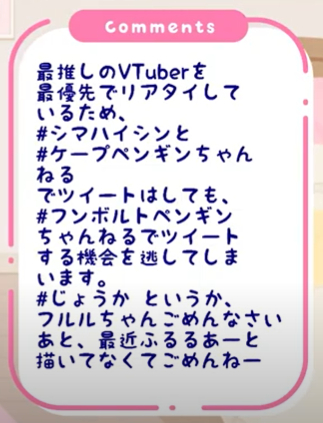 Comments
最推しのVTuberを
最優先でリアタイして
いるため、
#シマハイシンと
#ケープペンギンちゃん
ねる
でツイートはしても、
#フンボルトペンギン
ちゃんねるでツイート
する機会を逃してしま
います。
#じょうか というか、
フルルちゃんごめんなさい
あと、最近ふるるあーと
描いてなくてごめんねー